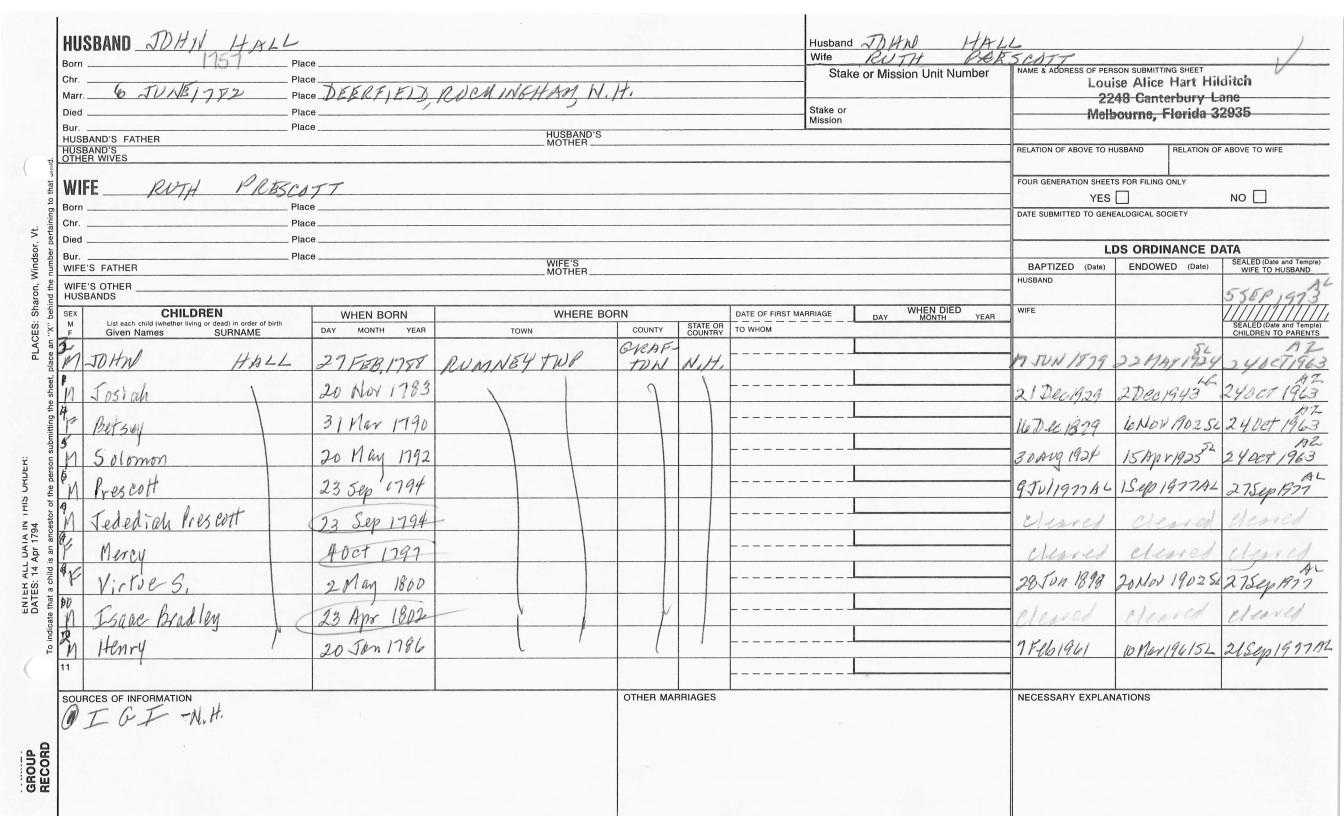 HUSBAND JOHN HALL
Born 1757 Place
Chr. Place
Marr. 6 JUNE 1782 Place DEERFIELD, ROCKINGHAM, N.H.
Died Place
Bur. Place
HUSBAND'S FATHER HUSBAND'S MOTHER
HUSBAND'S OTHER WIVES
Husband JOHN HALL
Wife RUTH PRESCOTT
Stake or Mission Unit Number
Stake or Mission
NAME & ADDRESS OF PERSON SUBMITTING SHEET
Louise Alice Hart Hilditch
2248 Canterbury Lane
Melbourne, Florida 32935
RELATION OF ABOVE TO HUSBAND RELATION OF ABOVE TO WIFE
FOUR GENERATION SHEETS FOR FILING ONLY
YES NO
DATE SUBMITTED TO GENEALOGICAL SOCIETY
WIFE RUTH PRESCOTT
Born Place
Chr. Place
Died Place
Bur. Place
WIFE'S FATHER WIFE'S MOTHER
WIFE'S OTHER HUSBANDS
LDS ORDINANCE DATA
BAPTIZED (Date) ENDOWED (Date) SEALED (Date and Temple) WIFE TO HUSBAND
HUSBAND
5 SEP 1973 AL
WIFE
SEALED (Date and Temple) CHILDREN TO PARENTS
SEX M F CHILDREN WHEN BORN WHERE BORN DATE OF FIRST MARRIAGE WHEN DIED
List each child (whether living or dead) in order of birth
Given Names SURNAME DAY MONTH YEAR TOWN COUNTY STATE OR COUNTRY TO WHOM DAY MONTH YEAR
M JOHN HALL 27 FEB. 1788 RUMNEY TWP GRAFTON N.H. 17 JUN 1879 22 MAY 1924 SL 24 OCT 1963 AZ
M Josiah 20 Nov 1783 21 Dec 1929 2 Dec 1943 24 Oct 1963 AZ
F Betsey 31 Mar 1790 16 Dec 1879 6 Nov 1902 SL 24 Oct 1963 AZ
M Solomon 20 May 1792 30 Aug 1924 15 Apr 1925 SL 24 Oct 1963 AZ
M Prescott 23 Sep 1794 9 Jul 1977 AL 1 Sep 1977 AL 27 Sep 1977 AL
M Jedediah Prescott 23 Sep 1794 cleared cleared cleared
F Mercy 4 Oct 1797 cleared cleared cleared
F Virtue S. 2 May 1800 28 Jun 1898 20 Nov 1902 SL 27 Sep 1977 AL
M Isaac Bradley 23 Apr 1802 cleared cleared cleared
M Henry 20 Jan 1786 7 Feb 1961 10 Mar 1961 SL 21 Sep 1977 AL
11
SOURCES OF INFORMATION OTHER MARRIAGES NECESSARY EXPLANATIONS
IGI - N.H.
ENTER ALL DATA IN THIS ORDER:
DATES: 14 Apr 1794 PLACES: Sharon, Windsor, Vt.
To indicate that a child is an ancestor of the person submitting the sheet, place an "X" behind the number pertaining to that
GROUP
RECORD